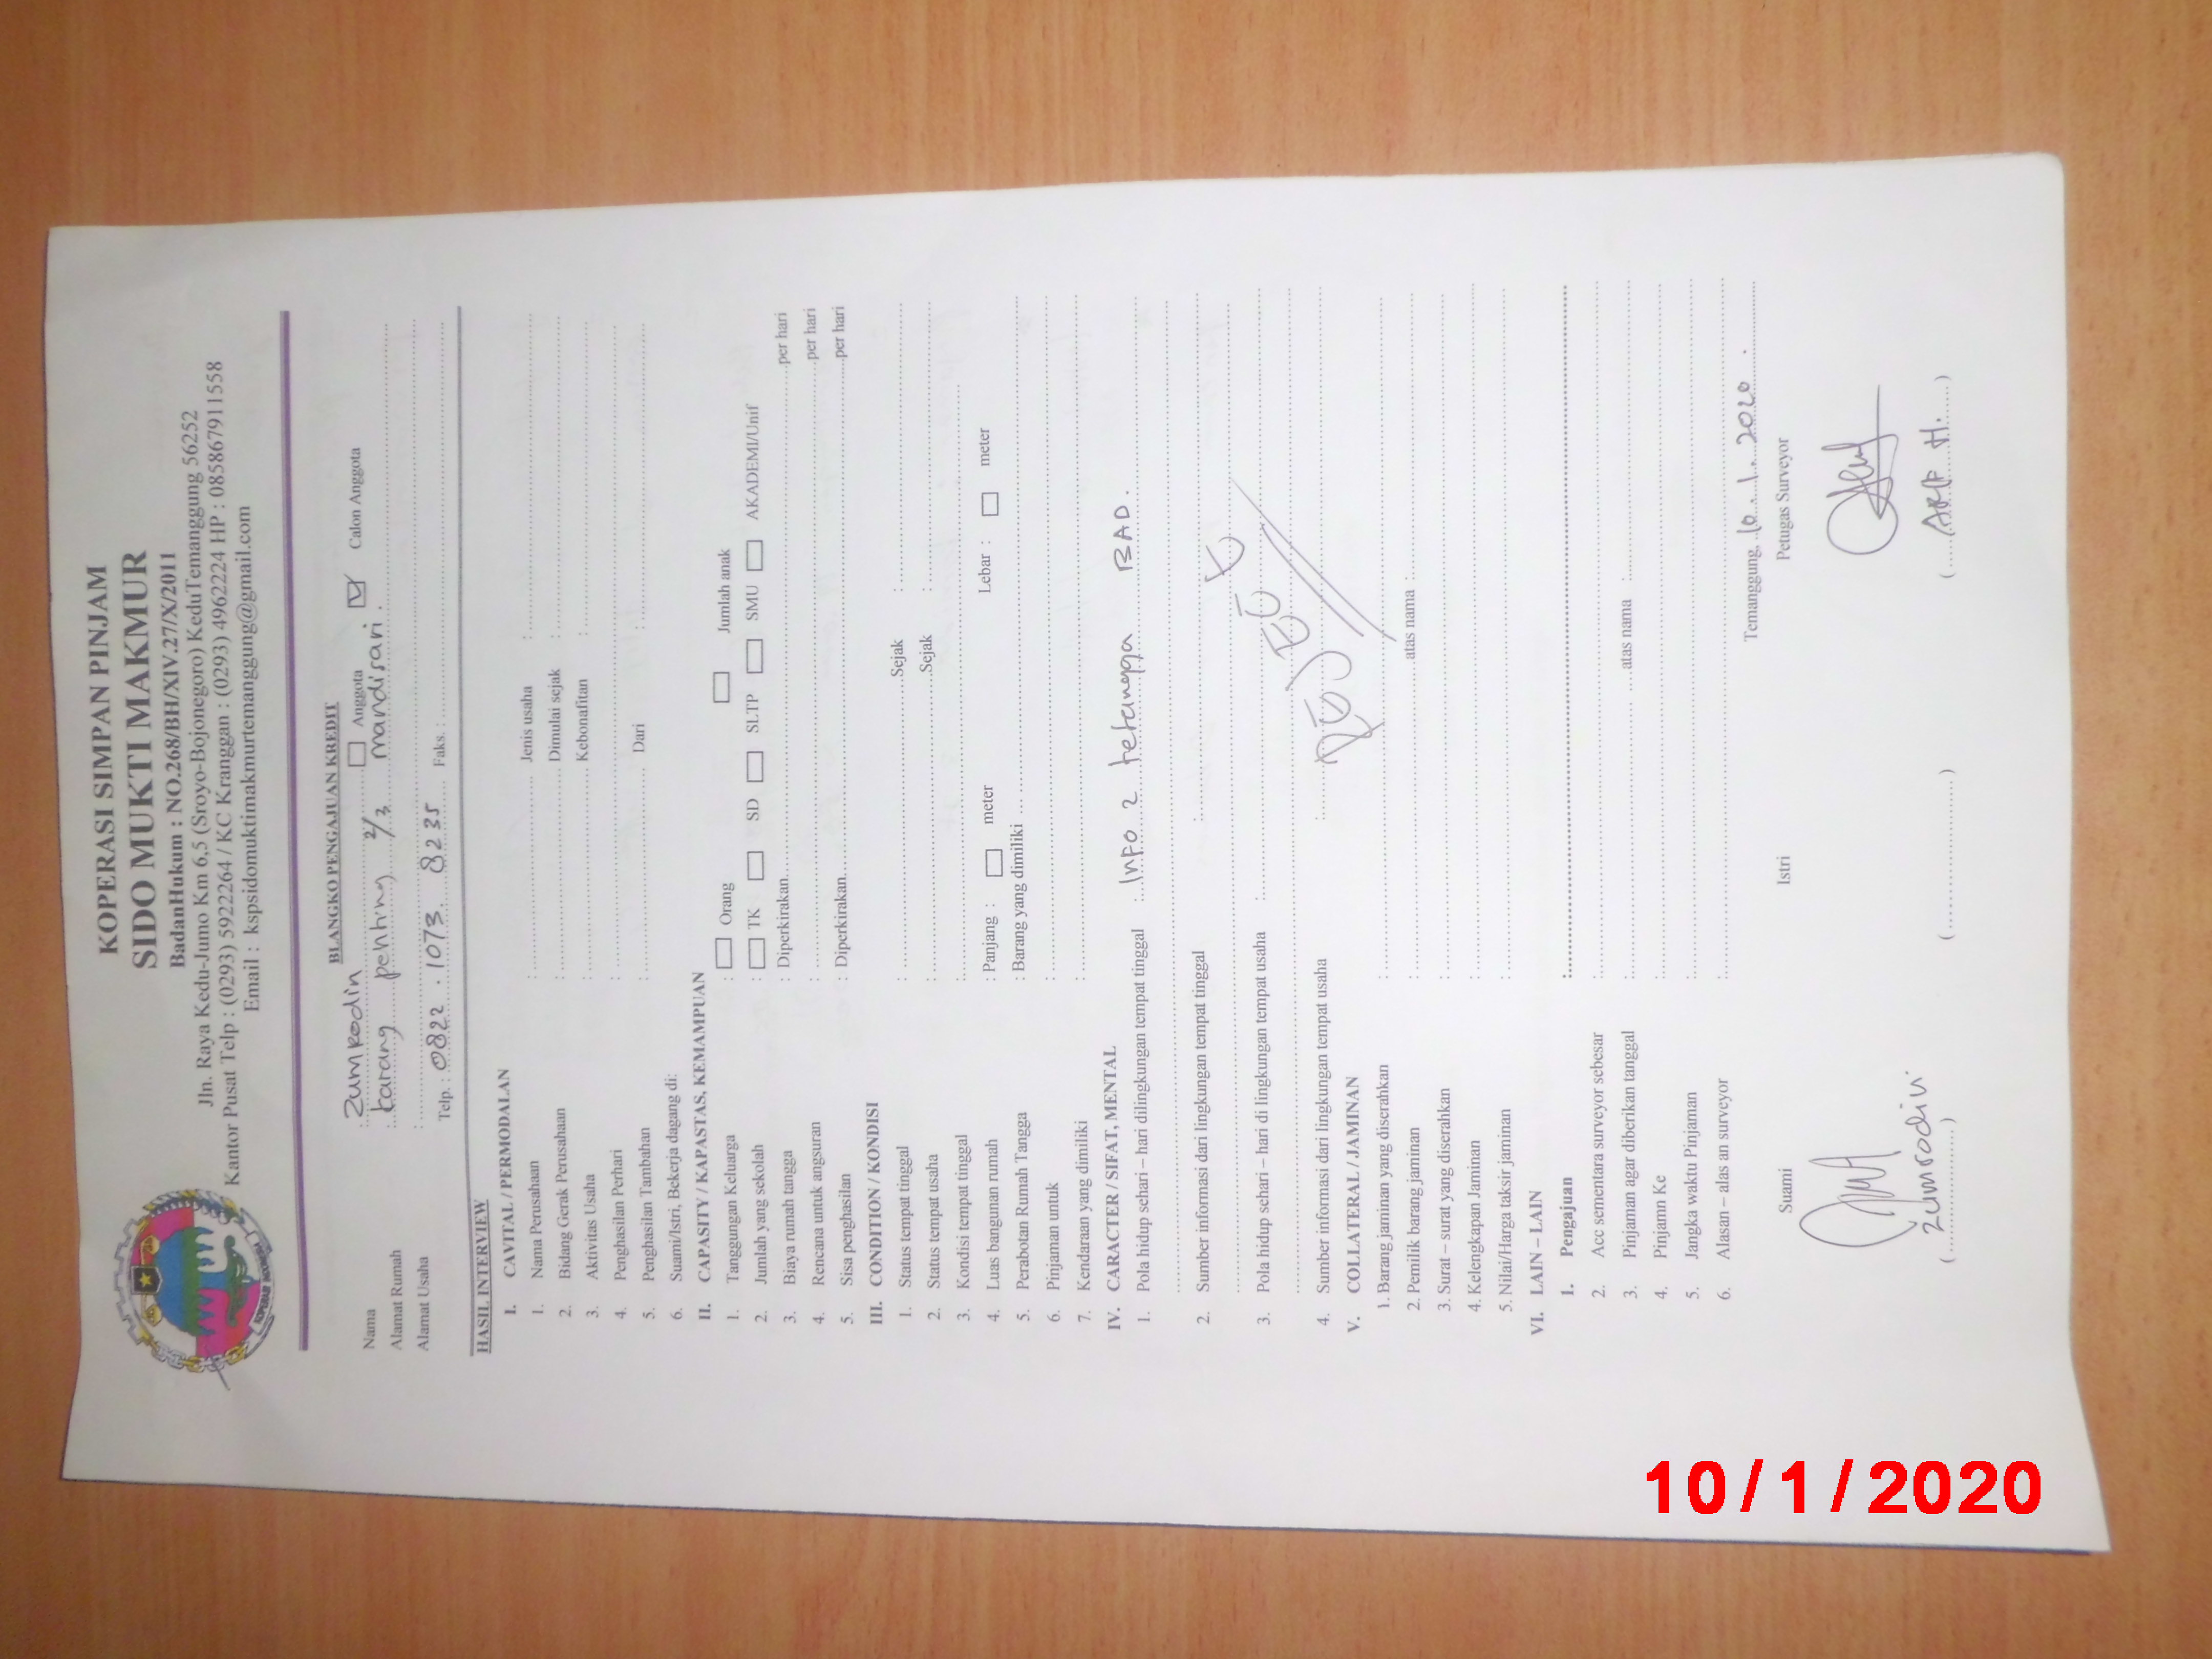 KOPERASI SIMPAN PINJAM
SIDO MUKTI MAKMUR
BadanHukum : NO.268/BH/XIV.27/X/2011
Jln. Raya Kedu-Jumo Km 6,5 (Sroyo-Bojonegoro) KeduTemanggung 56252
Kantor Pusat Telp : (0293) 5922264 / KC Kranggan : (0293) 4962224 HP : 085867911558
Email : kspsidomuktimakmurtemanggung@gmail.com
KOPERASI INDONESIA
BLANGKO PENGAJUAN KREDIT
Nama : Zumrodin Anggota Calon Anggota
Alamat Rumah : karang penting 2/3 mandisari.
Alamat Usaha :
Telp : 0822 . 1073 . 8235 Faks. :
HASIL INTERVIEW
I. CAVITAL / PERMODALAN
1. Nama Perusahaan : Jenis usaha :
2. Bidang Gerak Perusahaan : Dimulai sejak :
3. Aktivitas Usaha : Kebonafitan :
4. Penghasilan Perhari :
5. Penghasilan Tambahan : Dari :
6. Suami/Istri, Bekerja dagang di:
II. CAPASITY / KAPASTAS, KEMAMPUAN
1. Tanggungan Keluarga : Orang Jumlah anak
2. Jumlah yang sekolah : TK SD SLTP SMU AKADEMI/Unif
3. Biaya rumah tangga : Diperkirakan per hari
4. Rencana untuk angsuran : per hari
5. Sisa penghasilan : Diperkirakan per hari
III. CONDITION / KONDISI
1. Status tempat tinggal : Sejak :
2. Status tempat usaha : Sejak :
3. Kondisi tempat tinggal :
4. Luas bangunan rumah : Panjang : meter Lebar : meter
5. Perabotan Rumah Tangga : Barang yang dimiliki
6. Pinjaman untuk :
7. Kendaraan yang dimiliki :
IV. CARACTER / SIFAT, MENTAL
1. Pola hidup sehari – hari dilingkungan tempat tinggal : Info 2 tetangga BAD.
2. Sumber informasi dari lingkungan tempat tinggal :
3. Pola hidup sehari – hari di lingkungan tempat usaha :
4. Sumber informasi dari lingkungan tempat usaha :
V. COLLATERAL / JAMINAN
1. Barang jaminan yang diserahkan :
2. Pemilik barang jaminan : atas nama :
3. Surat – surat yang diserahkan :
4. Kelengkapan Jaminan :
5. Nilai/Harga taksir jaminan :
VI. LAIN – LAIN
1. Pengajuan :
2. Acc sementara surveyor sebesar :
3. Pinjaman agar diberikan tanggal : atas nama :
4. Pinjamn Ke :
5. Jangka waktu Pinjaman :
6. Alasan – alas an surveyor :
Temanggung, 10 . 1 . 2020 .
Suami Istri Petugas Surveyor
( Zumrodin ) ( ) ( ARIF H. )
10/1/2020